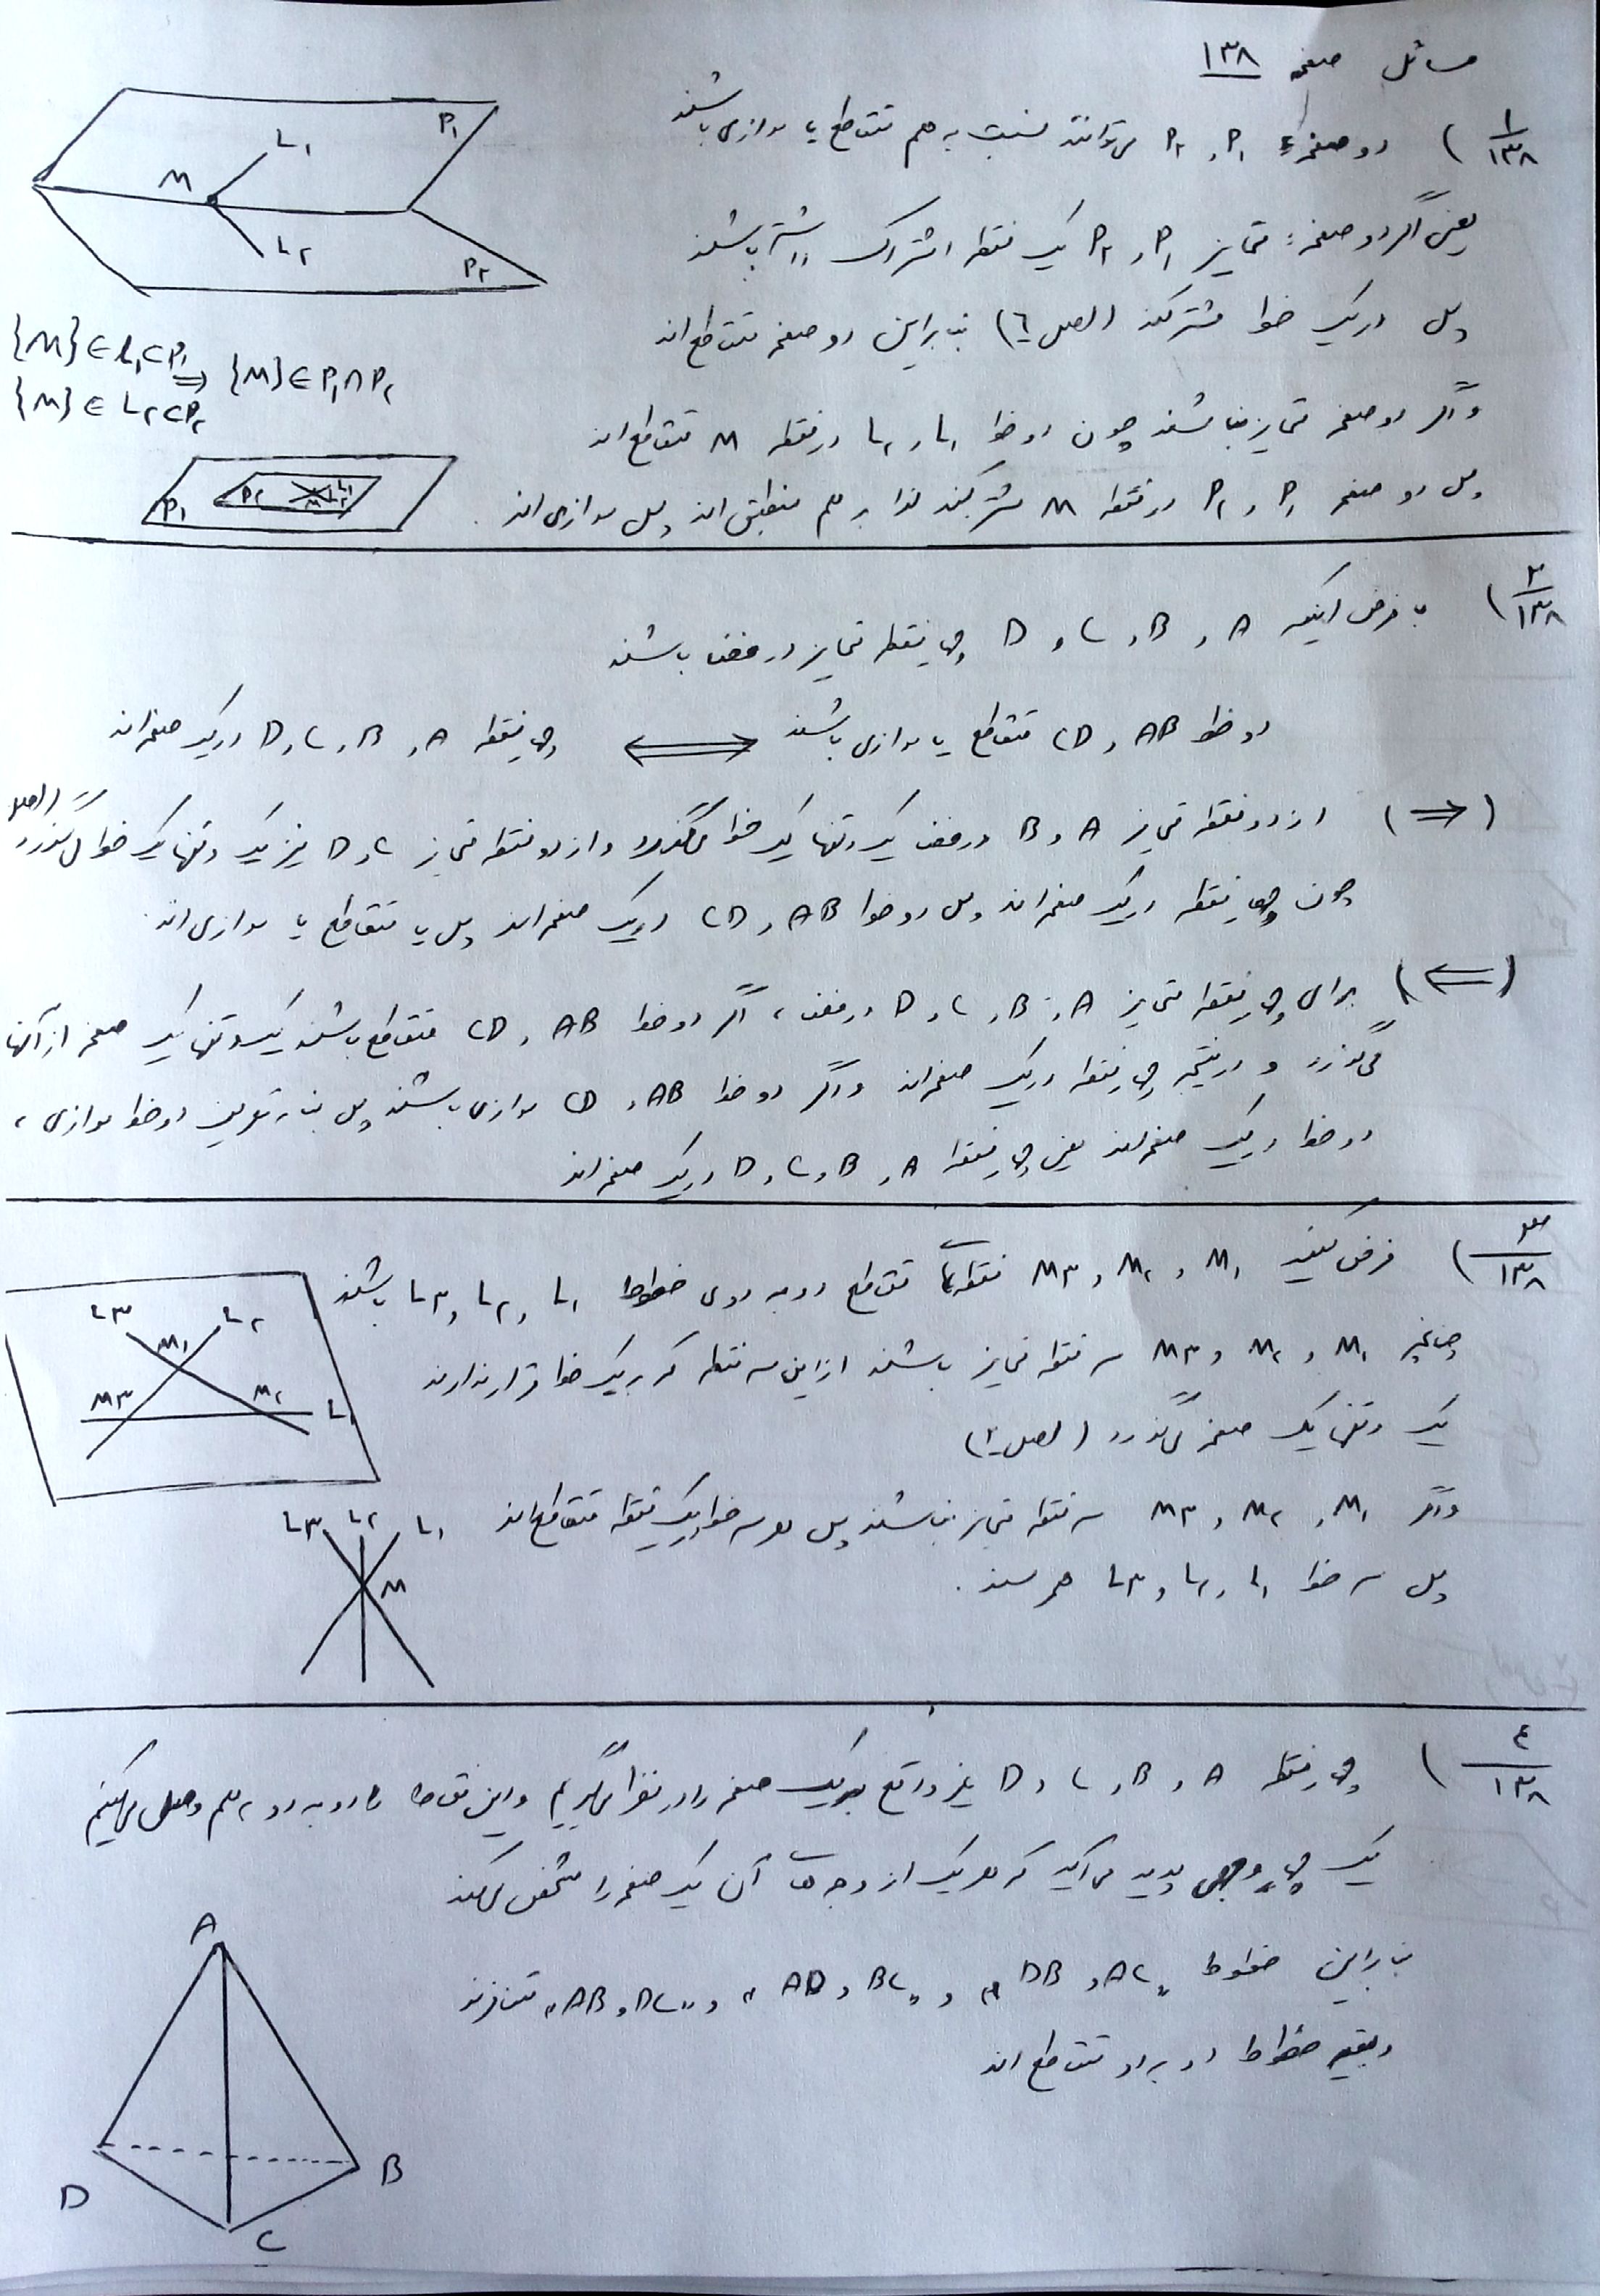 مسائل صفحه ۱۳۸
۱/۱۳۸) دو صفحهٔ P۱ و P۲ می‌توانند نسبت به هم متقاطع یا موازی باشند
یعنی اگر دو صفحه متمایز P۱ و P۲ یک نقطه اشتراک داشته باشند
پس در یک خط مشترکند (اصل ۶) بنابراین دو صفحه متقاطع‌اند
و اگر دو صفحه متمایز نباشند چون دو خط L۱ و L۲ در نقطه M متقاطع‌اند
پس دو صفحه P۱ و P۲ در نقطه M مشترکند لذا بر هم منطبق‌اند پس موازی‌اند.
P۱
L۱
M
L۲
P۲
{M} ∈ L۱ ⊂ P۱
⇒ {M} ∈ P۱ ∩ P۲
{M} ∈ L۲ ⊂ P۲
P۱ P۲ M L۱ L۲
۲/۱۳۸) با فرض اینکه A و B و C و D چهار نقطه متمایز در فضا باشند
دو خط AB و CD متقاطع یا موازی باشند ⟺ چهار نقطه A و B و C و D در یک صفحه‌اند
(⇒) از دو نقطه متمایز A و B در فضا یک و تنها یک خط می‌گذرد و از دو نقطه متمایز C و D نیز یک و تنها یک خط می‌گذرد (اصل
چون چهار نقطه در یک صفحه‌اند پس دو خط AB و CD در یک صفحه‌اند پس یا متقاطع یا موازی‌اند.
(⇐) برای چهار نقطه متمایز A و B و C و D در فضا، اگر دو خط AB و CD متقاطع باشند یک و تنها یک صفحه از آنها
می‌گذرد و در نتیجه چهار نقطه در یک صفحه‌اند و اگر دو خط AB و CD موازی باشند پس بنابر تعریف دو خط موازی،
دو خط در یک صفحه‌اند یعنی چهار نقطه A و B و C و D در یک صفحه‌اند
۳/۱۳۸) فرض کنید M۱ و M۲ و M۳ نقطه‌های تقاطع دو به دوی خطوط L۱ و L۲ و L۳ باشند
چنانچه M۱ و M۲ و M۳ سه نقطه متمایز باشند از این سه نقطه که بر یک خط قرار ندارند
یک و تنها یک صفحه می‌گذرد
و اگر M۱ و M۲ و M۳ سه نقطه متمایز نباشند پس هر سه خط در یک نقطه متقاطع‌اند
پس سه خط L۱ و L۲ و L۳ همرسند.
L۳ L۲
M۱
M۳ M۲ L۱
L۳ L۲ L۱
M
۴/۱۳۸) چهار نقطه A و B و C و D غیر واقع بر یک صفحه را در نظر می‌گیریم و این نقاط را دو به دو به هم وصل می‌کنیم
یک چهار وجهی پدید می‌آید که هر یک از وجه‌های آن یک صفحه را مشخص می‌کند
بنابراین خطوط "AC و DB" و "BC و AD" و "DC و AB" متنافرند
و بقیه خطوط دو به دو متقاطع‌اند
A
D
B
C